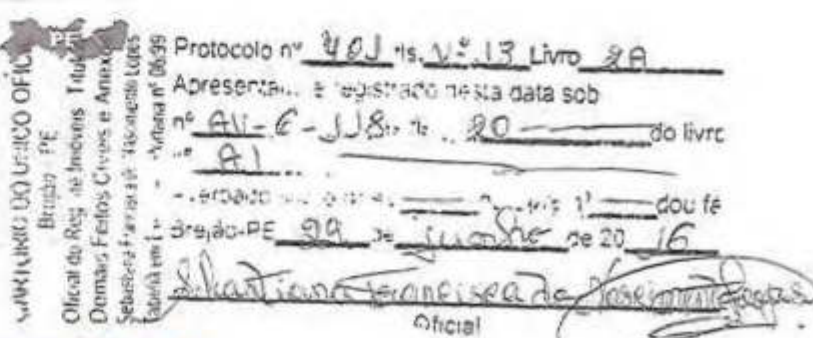 CARTÓRIO DO ÚNICO OFÍCIO
Brejão PE
Oficial do Reg. de Imóveis Títulos
Demais Feitos Cíveis e Anexos
Sebastiana Francisca do Nascimento Lopes
Portaria nº 06/99
PE
Protocolo nº 401 fls. Vº 13 Livro 2A
Apresentado e registrado nesta data sob
nº AV-6-118 20 do livro
A1
dou fé
Brejão-PE 29 de junho de 2016
Sebastiana Francisca do Nascimento Lopes
Oficial